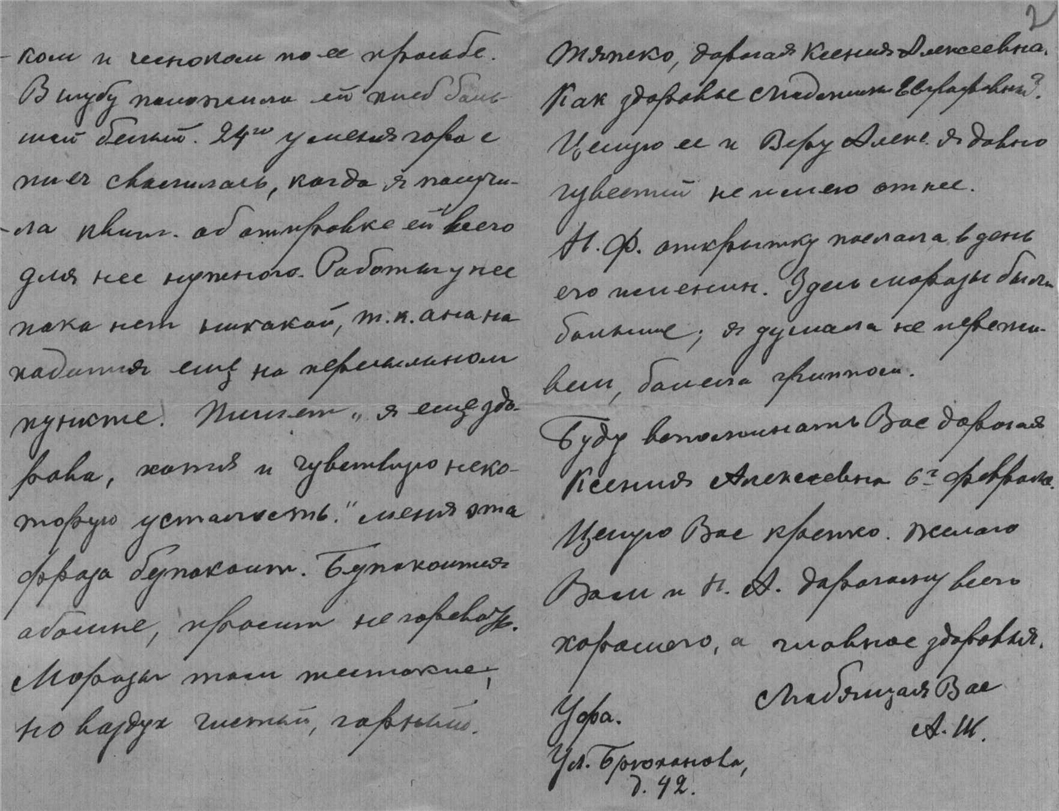 2
-ком и чесноком по ее просьбе.
В шубу положила ей хлеб боль-
шой белый. 24го у меня гора с
плеч свалилась, когда я получи-
-ла квит. об отправке ей всего
для нее нужного. Работы у нее
пока нет никакой, т.к. она на-
ходится ещё на пересыльном
пункте. Пишет „я еще здо-
рова, хотя и чувствую неко-
торую усталость." Меня эта
фраза беспокоит. Беспокоится
обо мне, просит не горевать.
Морозы там жестокие,
но воздух чистый, горный.
Тяжко, дорогая Ксения Алексеевна.
Как здоровье Младенцы
Целую ее и Веру Алекс. я давно
известий не имею от нее.
Н. Ф. открытку послала в день
его именин. Здесь морозы были
большие; я думала не пережи-
вем, болела гриппом.
Буду вспоминать Вас дорогая
Ксения Алексеевна 6го февраля.
Целую Вас крепко. Желаю
Вам и Н. А. дорогому всего
хорошего, а главное здоровья.
Любящая Вас
А. Ш.
Уфа.
Ул. Брюханова,
д. 42.